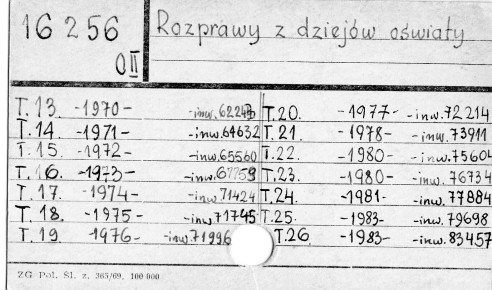 16 256
OII
Rozprawy z dziejów oświaty
T.13. -1970- -inw.62243
T.14 -1971- -inw.64632
T.15. -1972- -inw.65560
T.16. -1973-
T.17. -1974- -inw.71424
T.18. -1975- -inw.71745
T.19. -1976- -inw.71996
T.20. -1977- -inw.72214
T.21. -1978- -inw.73911
T.22. -1980- -inw.75604
T.23. -1980- -inw.76734
T.24. -1981- -inw.77884
T.25. -1983- -inw.79698
T.26. -1983- -inw.83457
ZG Pol. Śl. z. 363/69, 100 000